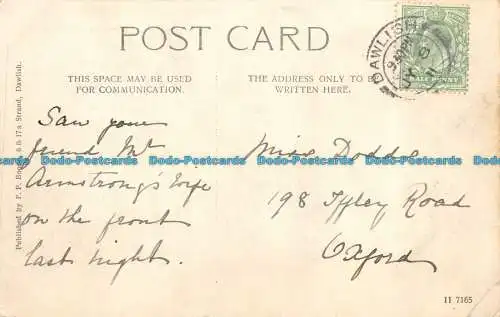 POST CARD
THIS SPACE MAY BE USED
FOR COMMUNICATION.
THE ADDRESS ONLY TO B
WRITTEN HERE.
DAWLISH
HALF PENNY
Saw your
friend Mr
Armstrong's wife
on the front
last night.
Miss Dodds
198 Iffley Road
Oxford
Published by F. P. & 17a Strand, Dawlish.
11 7165
Dodo-Postcards Dodo-Postcards Dodo-Postcards Dodo-Postcards Dodo-Postcards